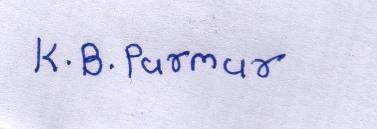 K.B. Parmar